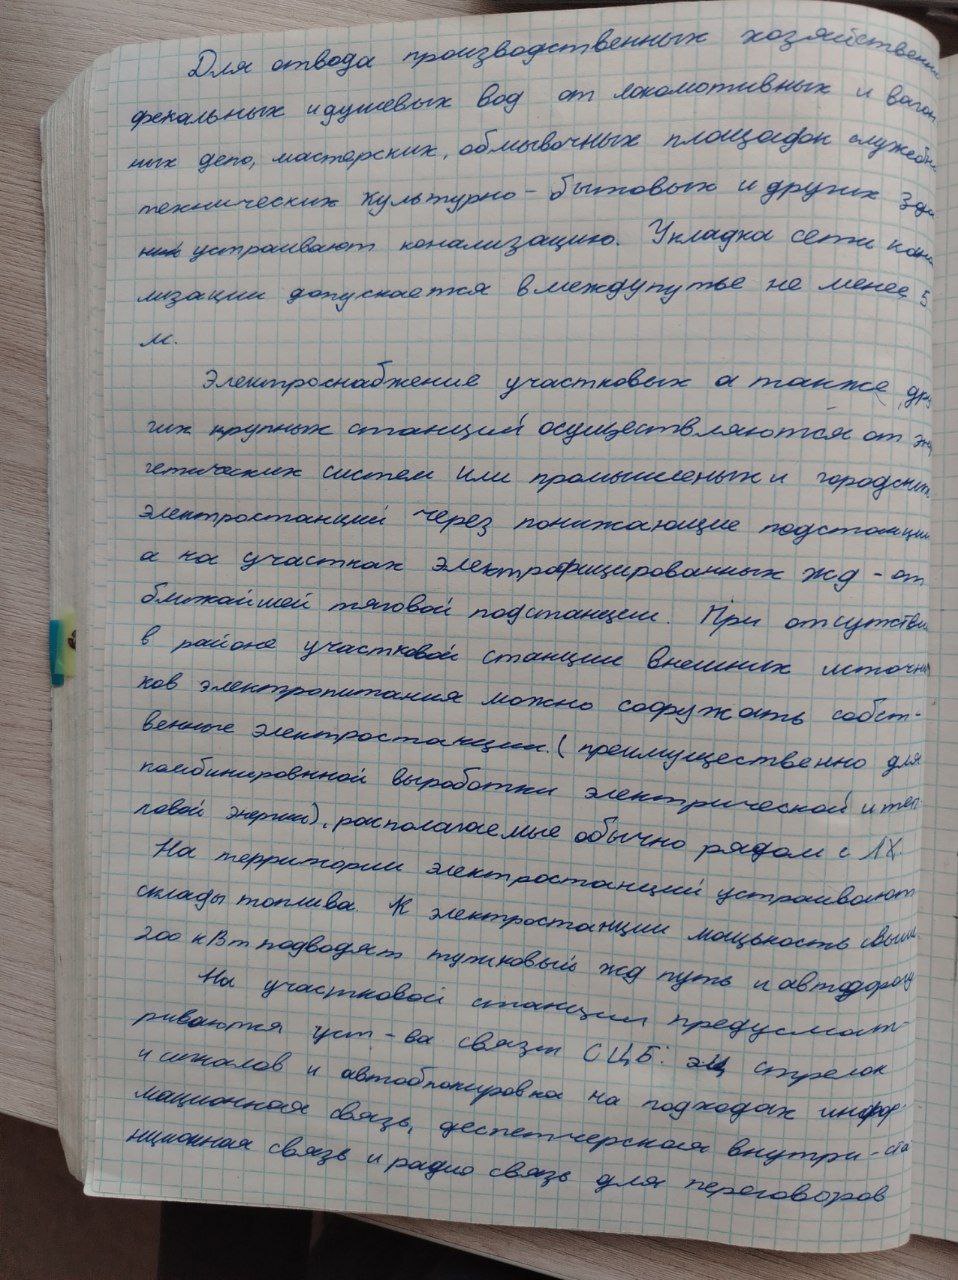 Для отвода производственных хозяйственно
фекальных и душевых вод от локомотивных и вагон
ных депо, мастерских, обмывочных площадок служебно
технических культурно - бытовых и других зда
ний устраивают канализацию. Укладка сети кана
лизации допускается в междупутье не менее 5
м.
Электроснабжение участковых а также дру
гих крупных станций осуществляются от энер
гетических систем или промышленых и городских
электростанций через понижающие подстанции
а на участках электрофицированных жд - от
ближайшей тяговой подстанции. При отсутствии
в районе участковой станции внешних источни
ков электропитания можно сооружать собст-
венные электростанции. (преимущественно для
комбинировнной выработки электрической и теп-
ловой энергии), располагаемые обычно рядом с ЛХ.
На территории электростанций устраивают
склады топлива. К электростанции мощьность свыше
200 кВт подводят тупковый жд путь и автодорогу
На участковой станции предусмат-
риваются уст - ва связи СЦБ: эц стрелок
и сигналов и автоблокировка на подходах инфор-
мационная связь, деспетчерская внутри - ста
нционная связь и радио связь для переговоров